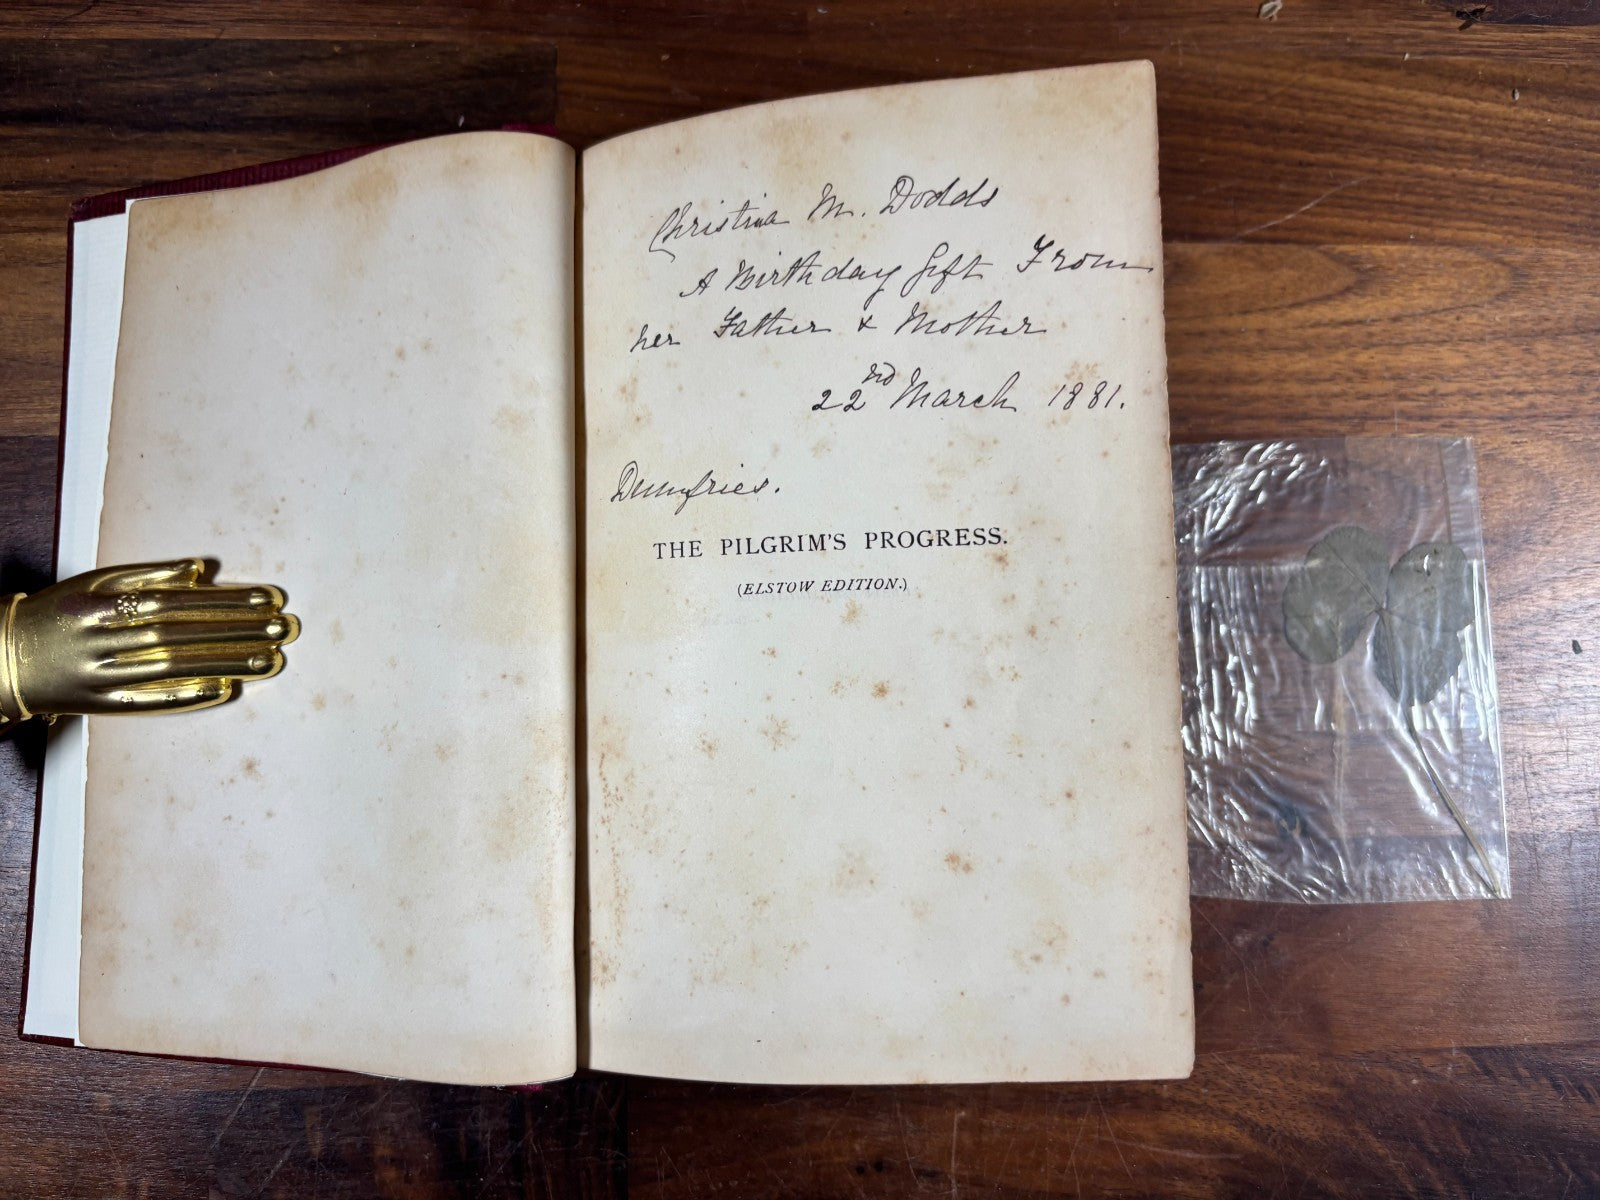 Christina M. Dodds
A Birthday Gift From
her Father & Mother
22nd March 1881.
Dumfries.
THE PILGRIM'S PROGRESS.
(ELSTOW EDITION.)